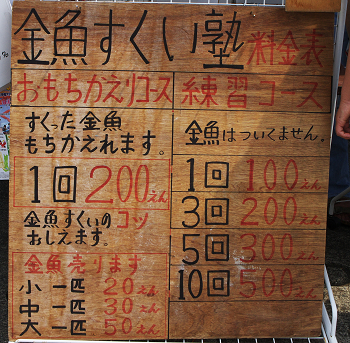 金魚すくい塾 料金表
おもちかえりコース
すくった金魚
もちかえれます。
1回 200えん
金魚すくいのコツ
おしえます。
金魚売ります
小 一匹 20えん
中 一匹 30えん
大 一匹 50えん
練習コース
金魚はついてません。
1回 100えん
3回 200えん
5回 300えん
10回 500えん